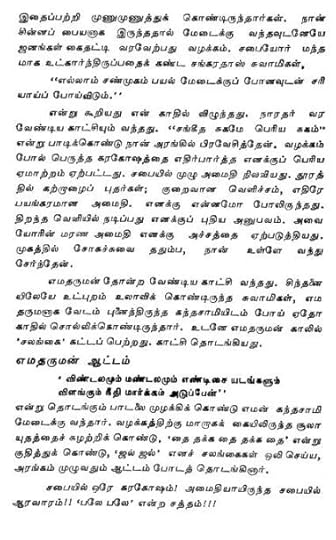 இதைப்பற்றி முணுமுணுத்துக் கொண்டிருந்தார்கள். நான்
சின்னப் பையனாக இருந்ததால் மேடைக்கு வந்தவுடனேயே
ஜனங்கள் கைதட்டி வரவேற்பது வழக்கம். சபையோர் மந்த
மாக உட்கார்ந்திருப்பதைக் கண்ட சங்கரதாஸ் சுவாமிகள்,
“எல்லாம் சண்முகம் பயல் மேடைக்குப் போனவுடன் சரி
யாய்ப் போய்விடும்.”
என்று கூறியது என் காதில் விழுந்தது. நாரதர் வர
வேண்டிய காட்சியும் வந்தது. “சங்கீத சுகமே பெரிய சுகம்”
என்று பாடிக்கொண்டு நான் அரங்கில் பிரவேசித்தேன். வழக்கம்
போல் பெருத்த கரகோஷத்தை எதிர்பார்த்த எனக்குப் பெரிய
ஏமாற்றம் ஏற்பட்டது. சபையில் முழு அமைதி நிலவியது. தூரத்
தில் கற்றாழைப் புதர்கள்; குறைவான வெளிச்சம், எதிரே
பயங்கரமான அமைதி. எனக்கு என்னமோ போலிருந்தது.
திறந்த வெளியில் நடிப்பது எனக்குப் புதிய அனுபவம். அவை
யோரின் மரண அமைதி எனக்கு அச்சத்தை ஏற்படுத்தியது.
முகத்தில் சோகச்சுவை ததும்ப, நான் உள்ளே வந்து
சேர்ந்தேன்.
எமதருமன் தோன்ற வேண்டிய காட்சி வந்தது. சிந்தனை
யிலேயே உட்புறம் உலாவிக் கொண்டிருந்த சுவாமிகள், எம
தருமனாக வேடம் புனைந்திருந்த கந்தசாமியிடம் போய் ஏதோ
காதில் சொல்லிக்கொண்டிருந்தார். உடனே எமதருமன் காலில்
‘சலங்கை’ கட்டப் பெற்றது. காட்சி தொடங்கியது.
எமதருமன் ஆட்டம்
“விண்டலமும் மண்டலமும் எண்டிசை யடங்களும்
விளங்கும் நீதி மார்க்கம் அடுப்பேன்”
என்று தொடங்கும் பாடலை முழக்கிக் கொண்டு எமன் கந்தசாமி
மேடைக்கு வந்தார். வழக்கத்திற்கு மாறாகக் கையிலிருந்த சூலா
யுதத்தைச் சுழற்றிக் கொண்டு, ‘தை தக்க தை தக்க தை’ என்று
குதித்துக் கொண்டு, ‘ஜல் ஜல்’ எனச் சலங்கைகள் ஒலி செய்ய,
அரங்கம் முழுவதும் ஆட்டம் போடத் தொடங்கினார்.
சபையில் ஒரே கரகோஷம்! அமைதியாயிருந்த சபையில்
ஆரவாரம்!! ‘பலே பலே’ என்ற சத்தம்!!!